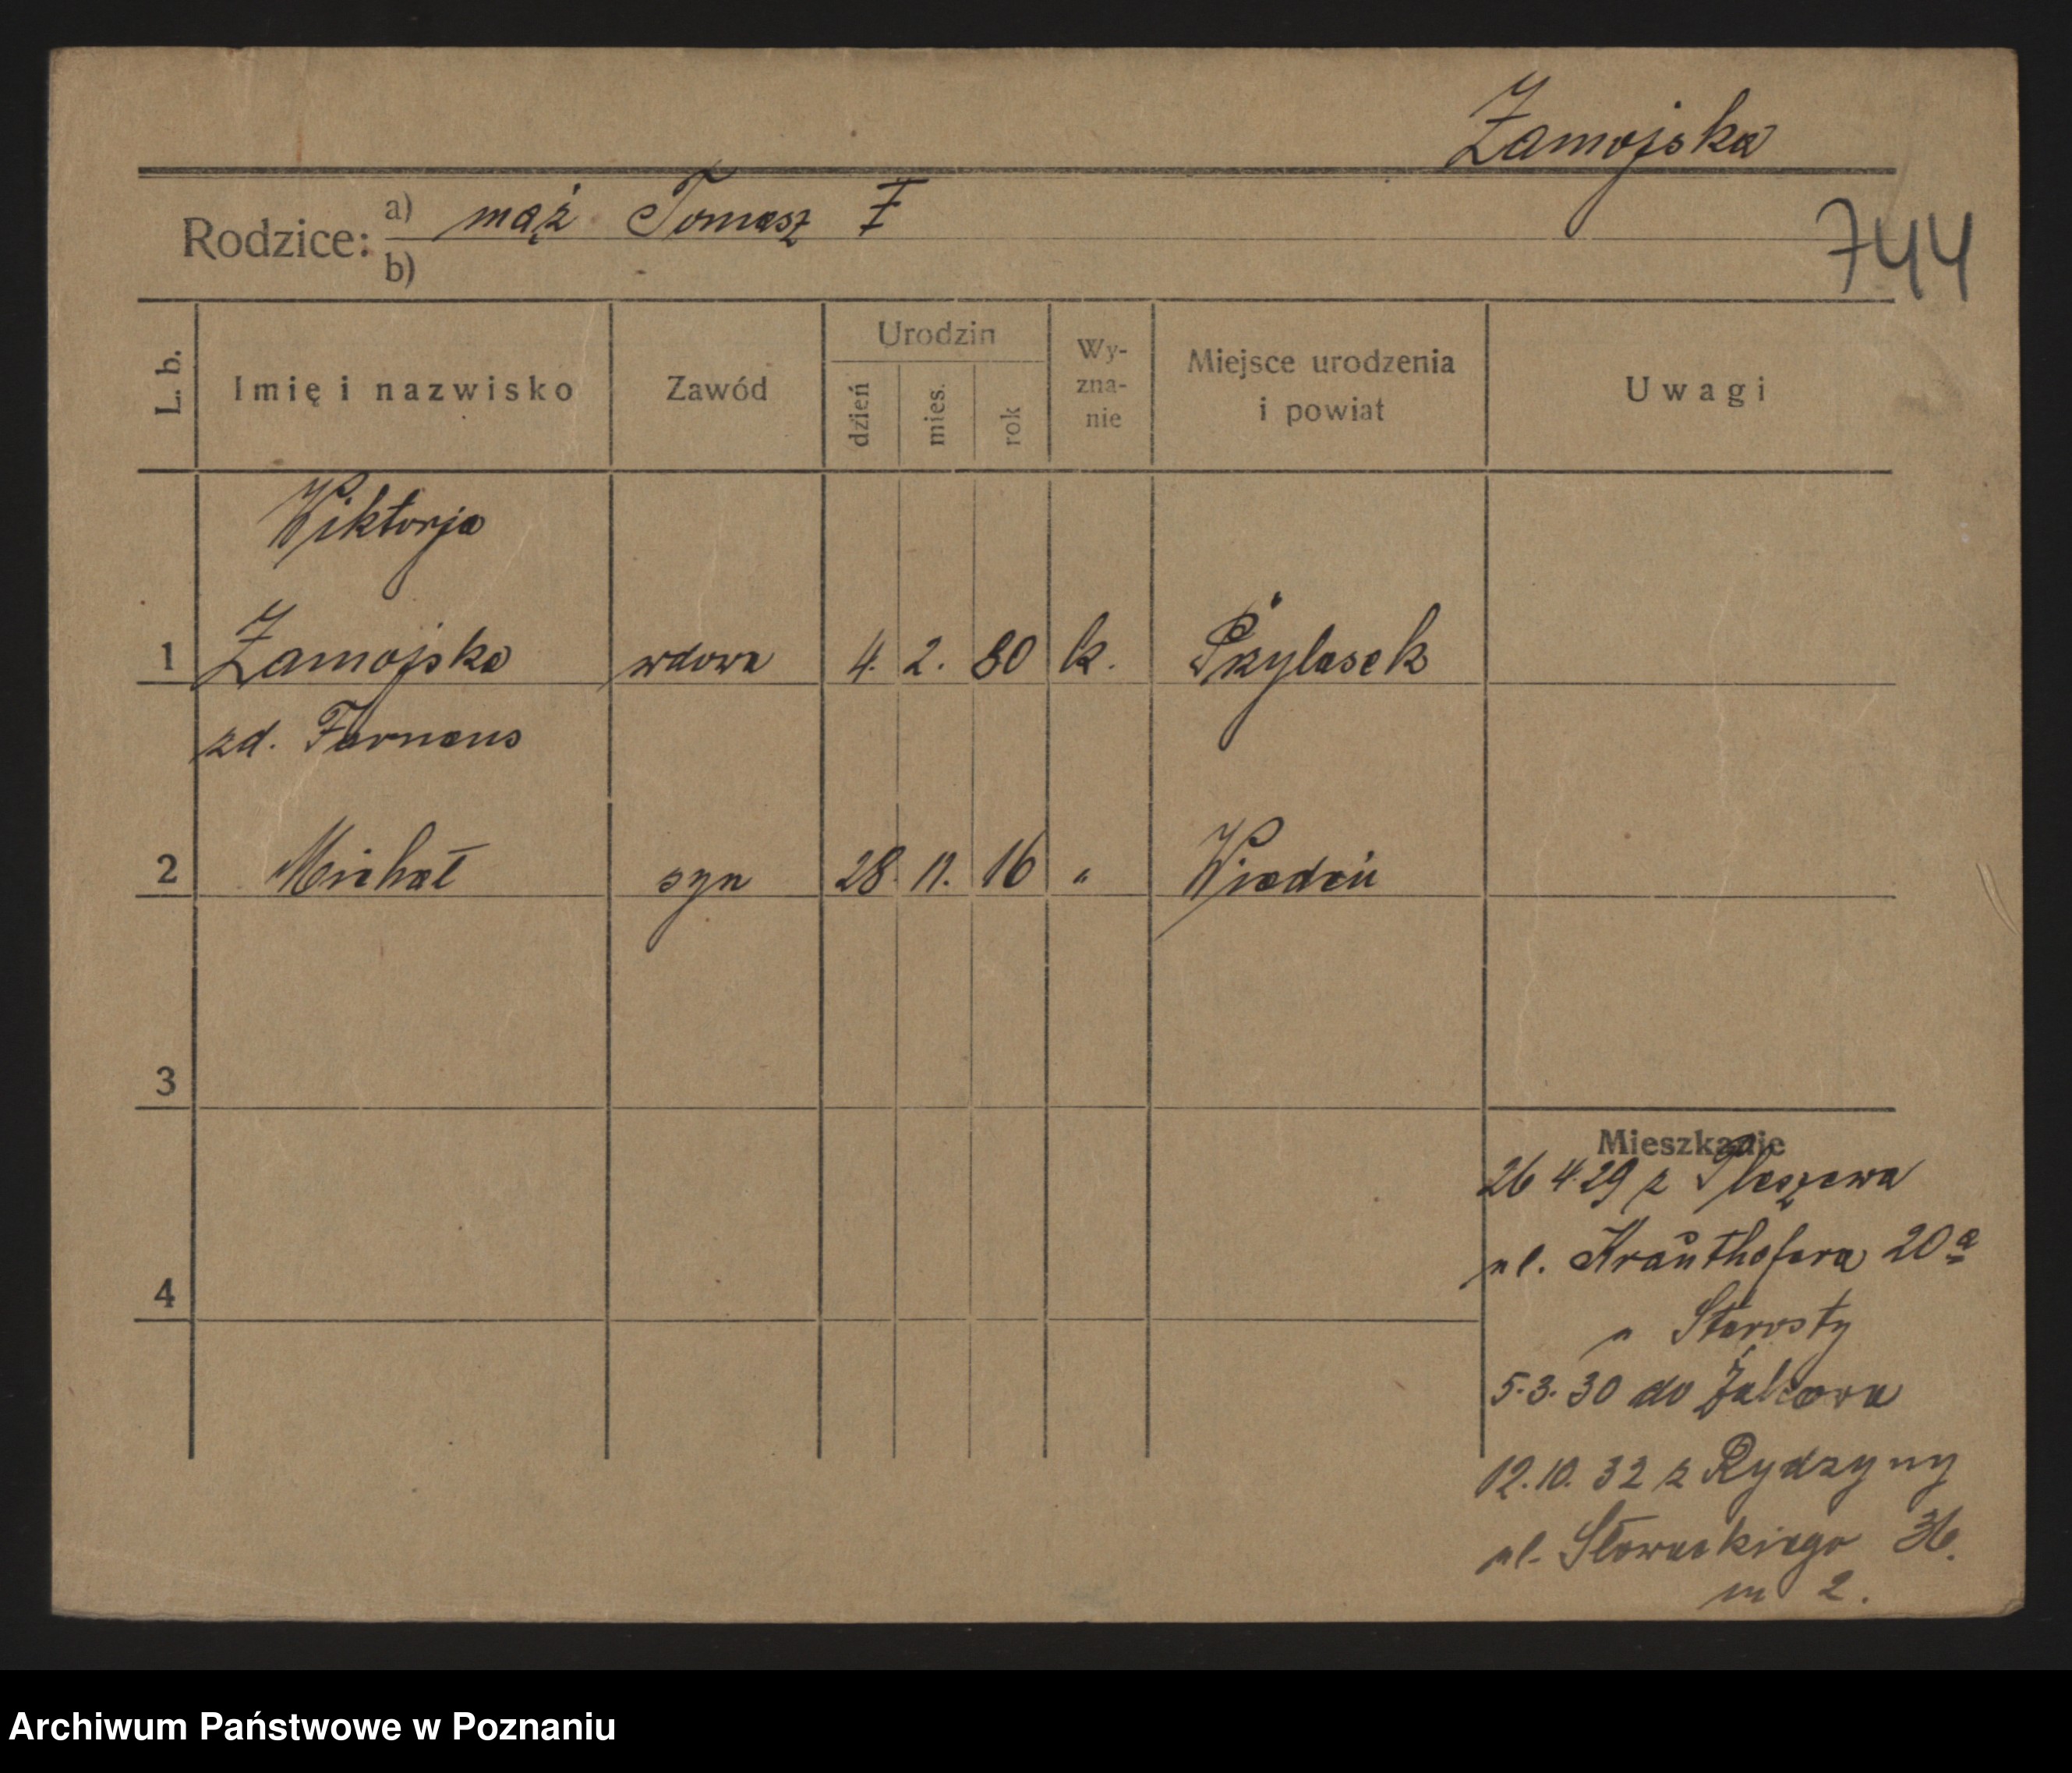 Zamojska
Rodzice: a) mąż Tomasz Ŧ
b)
744
L. b.
Imię i nazwisko
Zawód
Urodzin
dzień
mies.
rok
Wy-
zna-
nie
Miejsce urodzenia
i powiat
Uwagi
Wiktorja
1 Zamojska wdowa 4. 2. 80 k.
zd.
2 Michał syn 28. 11. 16 " Wiedeń
3
Mieszkanie
26 4 29 z Pleszewa
ul. Krauthofera 20a
u Starosty
4
5.3.30 do
12.10.32 z Rydzyny
ul. Słowackiego 36.
m 2.
Archiwum Państwowe w Poznaniu